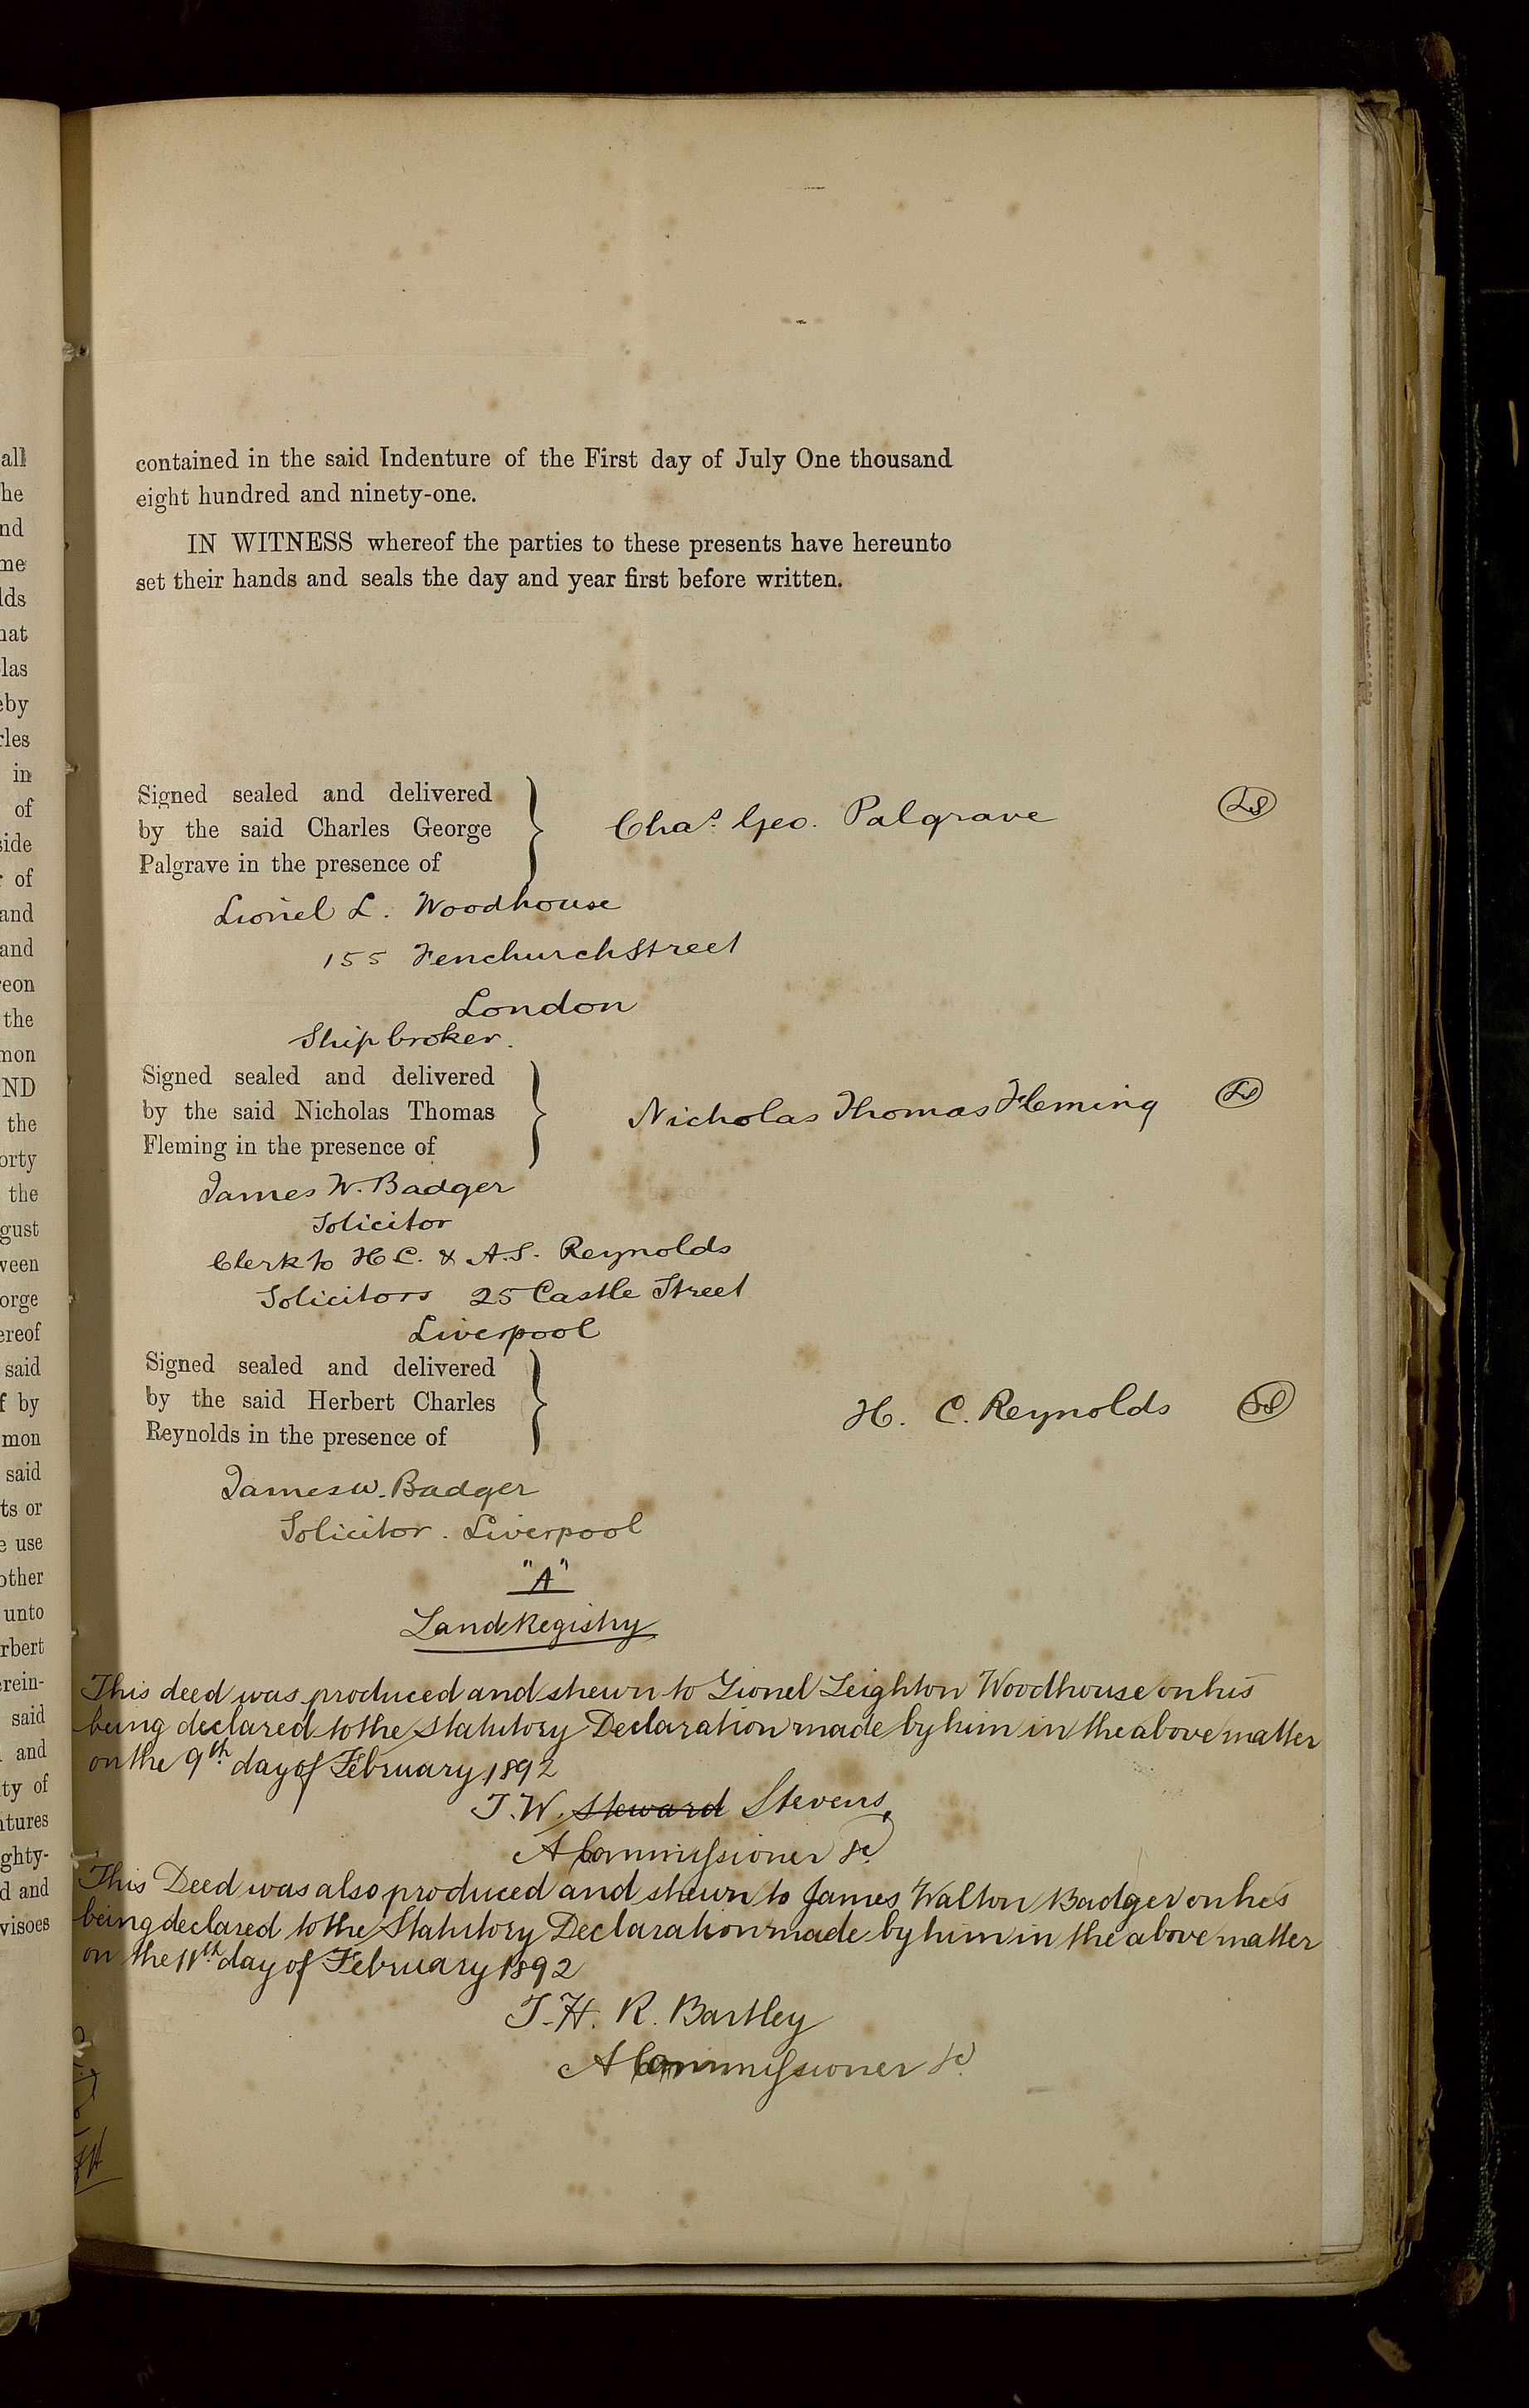 all
he
nd
me
lds
hat
las
eby
rles
in
of
side
r of
and
and
reon
the
mon
ND
the
orty
the
gust
veen
orge
ereof
said
f by
mon
said
ts or
e use
other
unto
rbert
erein-
said
and
ty of
ntures
ghty-
d and
visoes
contained in the said Indenture of the First day of July One thousand
eight hundred and ninety-one.
IN WITNESS whereof the parties to these presents have hereunto
set their hands and seals the day and year first before written.
Signed sealed and delivered
by the said Charles George
Palgrave in the presence of
Chas. Geo. Palgrave LS
Lionel L. Woodhouse
155 Fenchurch Street
London
Ship broker.
Signed sealed and delivered
by the said Nicholas Thomas
Fleming in the presence of
Nicholas Thomas Fleming LS
James W. Badger
Solicitor
Clerk to H C. & A. S. Reynolds
Solicitors 25 Castle Street
Liverpool
Signed sealed and delivered
by the said Herbert Charles
Reynolds in the presence of
H. C. Reynolds LS
James W. Badger
Solicitor. Liverpool
"A"
Land Registry
This deed was produced and shewn to Lionel Leighton Woodhouse on his
being declared to the Statutory Declaration made by him in the above matter
on the 9th day of February 1892
T. W. Steward Stevens,
A Commissioner &c.
This Deed was also produced and shewn to James Walton Badger on his
being declared to the Statutory Declaration made by him in the above matter
on the 11th day of February 1892
T. H. R. Bartley
A Commissioner &c.